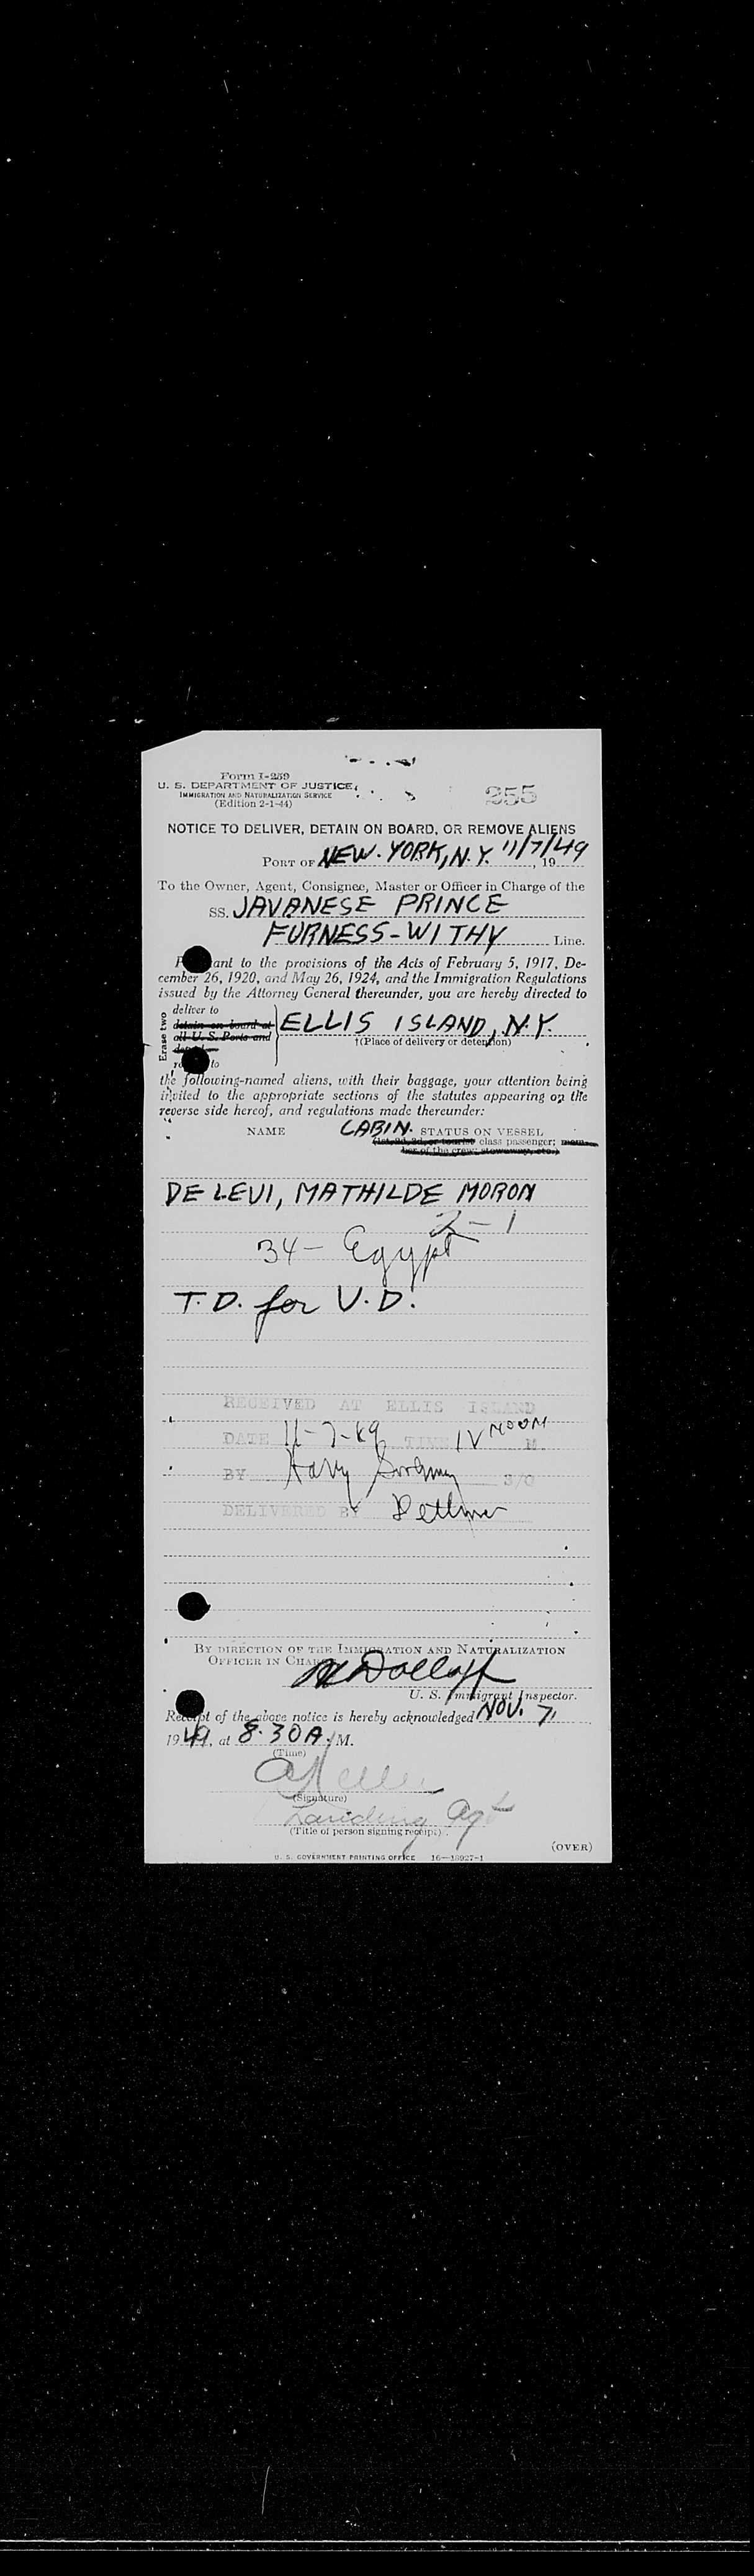 Form I-259
U. S. DEPARTMENT OF JUSTICE,
IMMIGRATION AND NATURALIZATION SERVICE
(Edition 2-1-44)
255
NOTICE TO DELIVER, DETAIN ON BOARD, OR REMOVE ALIENS
PORT OF NEW YORK, N.Y. 11/7/49, 19
To the Owner, Agent, Consignee, Master or Officer in Charge of the
SS. JAVANESE PRINCE
FURNESS-WITHY Line.
ant to the provisions of the Acts of February 5, 1917, De-
cember 26, 1920, and May 26, 1924, and the Immigration Regulations
issued by the Attorney General thereunder, you are hereby directed to
Erase two
deliver to
detain on board at
all U. S. Ports and
to
ELLIS ISLAND, N.Y.
†(Place of delivery or detention)
the following-named aliens, with their baggage, your attention being
invited to the appropriate sections of the statutes appearing on the
reverse side hereof, and regulations made thereunder:
NAME CABIN. STATUS ON VESSEL
class passenger; mem-
ber of the crew; stowaway, etc.)
DE LEVI, MATHILDE MORON
2-1
34- Egypt
T.D. for V.D.
RECEIVED AT ELLIS ISLAND
DATE 11-7-49 TIME NOON M.
BY Harry S/O
DELIVERED BY
BY DIRECTION OF THE IMMIGRATION AND NATURALIZATION
OFFICER IN
U. S. Immigrant Inspector.
Receipt of the above notice is hereby acknowledged NOV. 7,
1949, at 8:30 A. M.
(Time)
(Signature)
Landing Agt
(Title of person signing receipt)
(OVER)
U. S. GOVERNMENT PRINTING OFFICE 16-13927-1